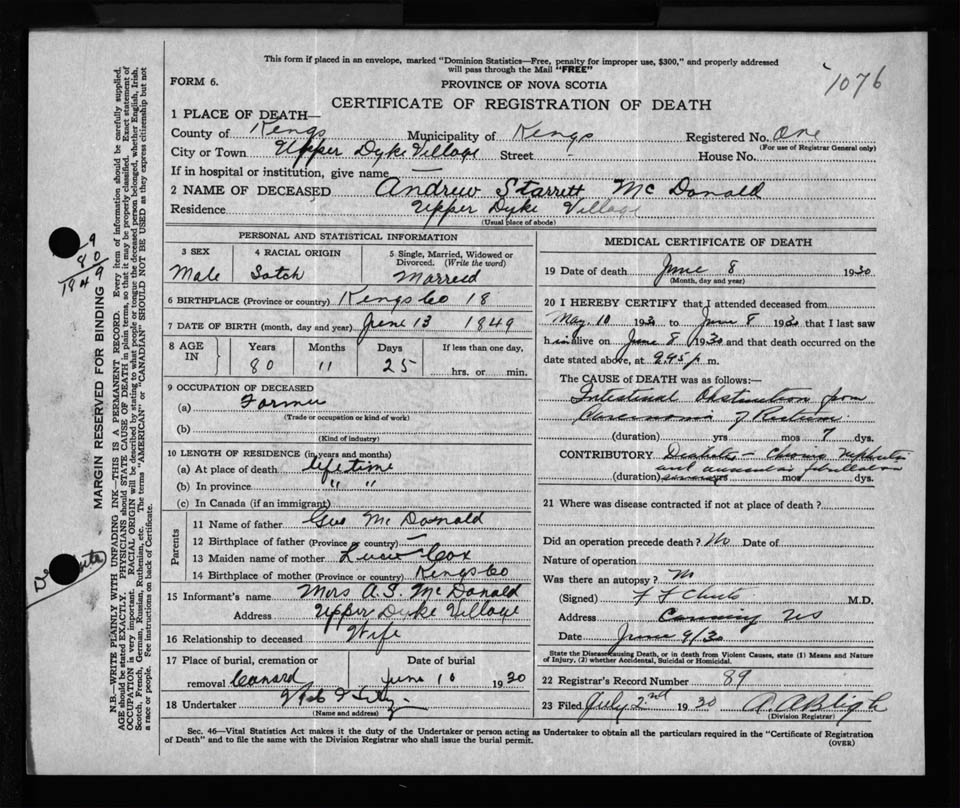 This form if placed in an envelope, marked "Dominion Statistics—Free, penalty for improper use, $300," and properly addressed
will pass through the Mail "FREE"
1076
FORM 6.
PROVINCE OF NOVA SCOTIA
CERTIFICATE OF REGISTRATION OF DEATH
1 PLACE OF DEATH—
County of Kings Municipality of Kings Registered No. One
(For use of Registrar General only)
City or Town Upper Dyke Village Street - House No.
If in hospital or institution, give name —
2 NAME OF DECEASED Andrew Starrett McDonald
Residence Upper Dyke Village
(Usual place of abode)
PERSONAL AND STATISTICAL INFORMATION
3 SEX 4 RACIAL ORIGIN 5 Single, Married, Widowed or Divorced. (Write the word)
Male Scotch Married
6 BIRTHPLACE (Province or country) Kings Co 18
7 DATE OF BIRTH (month, day and year) June 13 1849
8 AGE IN Years Months Days If less than one day,
80 11 25 hrs. or min.
9 OCCUPATION OF DECEASED
(a) Farmer
(Trade or occupation or kind of work)
(b)
(Kind of industry)
10 LENGTH OF RESIDENCE (in years and months)
(a) At place of death life time
(b) In province " "
(c) In Canada (if an immigrant)
Parents
11 Name of father Gus McDonald
12 Birthplace of father (Province or country) —
13 Maiden name of mother Lucie Cox
14 Birthplace of mother (Province or country) Kings Co
15 Informant's name Mrs A.S. McDonald
Address Upper Dyke Village
16 Relationship to deceased Wife
17 Place of burial, cremation or removal Canard
Date of burial June 10 1930
18 Undertaker
(Name and address)
MEDICAL CERTIFICATE OF DEATH
19 Date of death June 8 1930
(Month, day and year)
20 I HEREBY CERTIFY that I attended deceased from
May 10 1930 to June 8 1930 that I last saw
him alive on June 8 1930 and that death occurred on the
date stated above, at 9.45 p m.
The CAUSE of DEATH was as follows:—
Intestinal Obstruction from
Carcinoma of Rectum
(duration) yrs mos 7 dys.
CONTRIBUTORY Diabetes - Chronic nephritis
and auricular fibrillation
(duration) yrs mos dys.
21 Where was disease contracted if not at place of death?
Did an operation precede death? No Date of
Nature of operation
Was there an autopsy? No
(Signed) M.D.
Address Canning NS
Date June 9/30
State the Disease causing Death, or in death from Violent Causes, state (1) Means and Nature
of Injury, (2) whether Accidental, Suicidal or Homicidal.
22 Registrar's Record Number 89
23 Filed July 2nd 1930 A.A. Bligh
(Division Registrar)
Sec. 46—Vital Statistics Act makes it the duty of the Undertaker or person acting as Undertaker to obtain all the particulars required in the "Certificate of Registration
of Death" and to file the same with the Division Registrar who shall issue the burial permit. (OVER)
MARGIN RESERVED FOR BINDING
N.B.—WRITE PLAINLY WITH UNFADING INK—THIS IS A PERMANENT RECORD. Every item of information should be carefully supplied.
AGE should be stated EXACTLY. PHYSICIANS should STATE CAUSE OF DEATH in plain terms, so that it may be properly classified. Exact statement of
OCCUPATION is very important. RACIAL ORIGIN will be described by stating to what people or tongue the deceased person belonged, whether English, Irish,
Scotch, French, German, Russian, Ruthenian, etc. The terms "AMERICAN" or "CANADIAN" SHOULD NOT BE USED as they express citizenship but not
a race or people. See instructions on back of Certificate.
80
1849